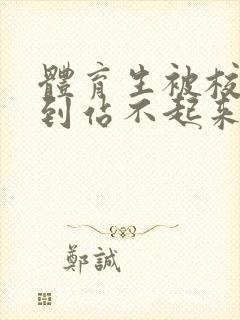 體育生被校
到佔不起來
鄭誠